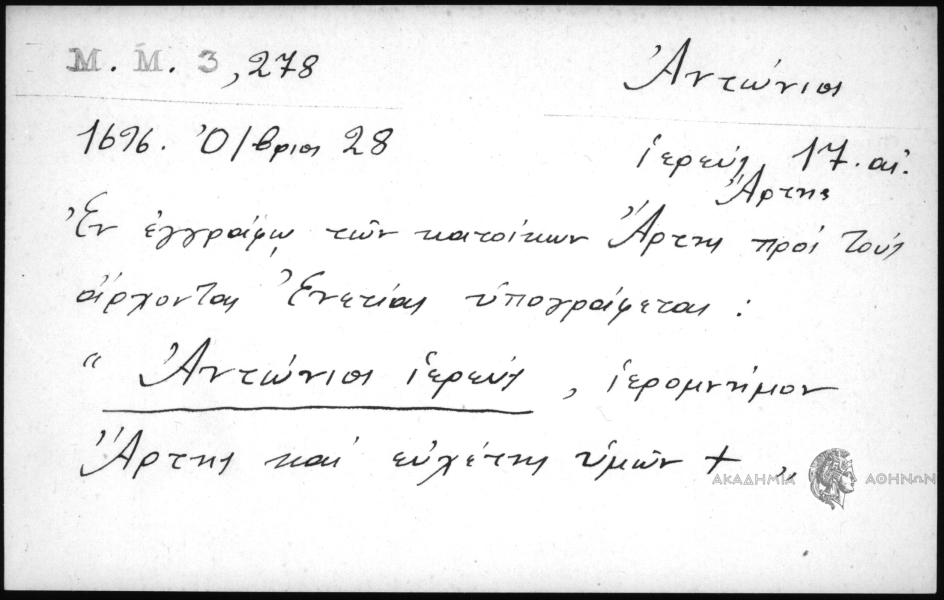 Μ. Μ. 3 , 278
Ἀντώνιος
1696. Ὀ/βριος 28
ἱερεύς, 17. αἰ.
Ἄρτης
Ἐν ἐγγράφῳ τῶν κατοίκων Ἄρτης πρός τούς
ἄρχοντας Ἐνετίας ὑπογράφεται :
“ Ἀντώνιος ἱερεύς , ἱερομνήμον
Ἄρτης καί εὐχέτης ὑμῶν + „
ΑΚΑΔΗΜΙΑ ΑΘΗΝΩΝ